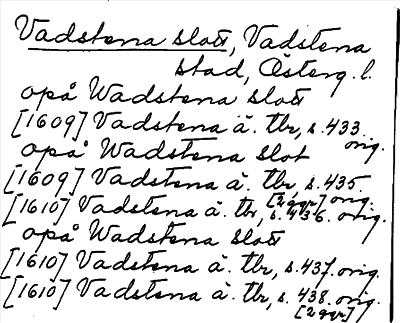 Vadstena slott, Vadstena
stad, Österg. l.
opå Wadstena slott
[1609] Vadstena ä. tb, s. 433 orig.
opå Wadstena slot
[1609] Vadstena ä. tb, s. 435 orig.
[1610] Vadstena ä. tb, s. 436. orig. [2 ggr]
opå Wadstena slott
[1610] Vadstena ä. tb, s. 437. orig.
[1610] Vadstena ä. tb, s. 438. orig.
[2 ggr]